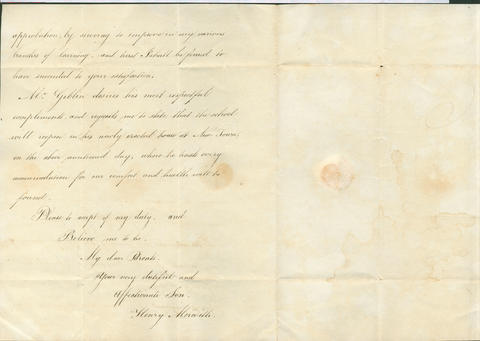 approbation, by striving to improve in my various
branches of learning, and trust I shall be found to
have succeeded to your satisfaction.
Mr. Giblin desires his most respectful
compliments and requests me to state that the school
will reopen in his newly erected house at New Town,
on the above mentioned day, where he trusts every
accommodation for our comfort and health will be
found.
Please to accept of my duty, and
Believe me to be,
My dear Parents,
Your very dutiful and
affectionate Son,
Henry